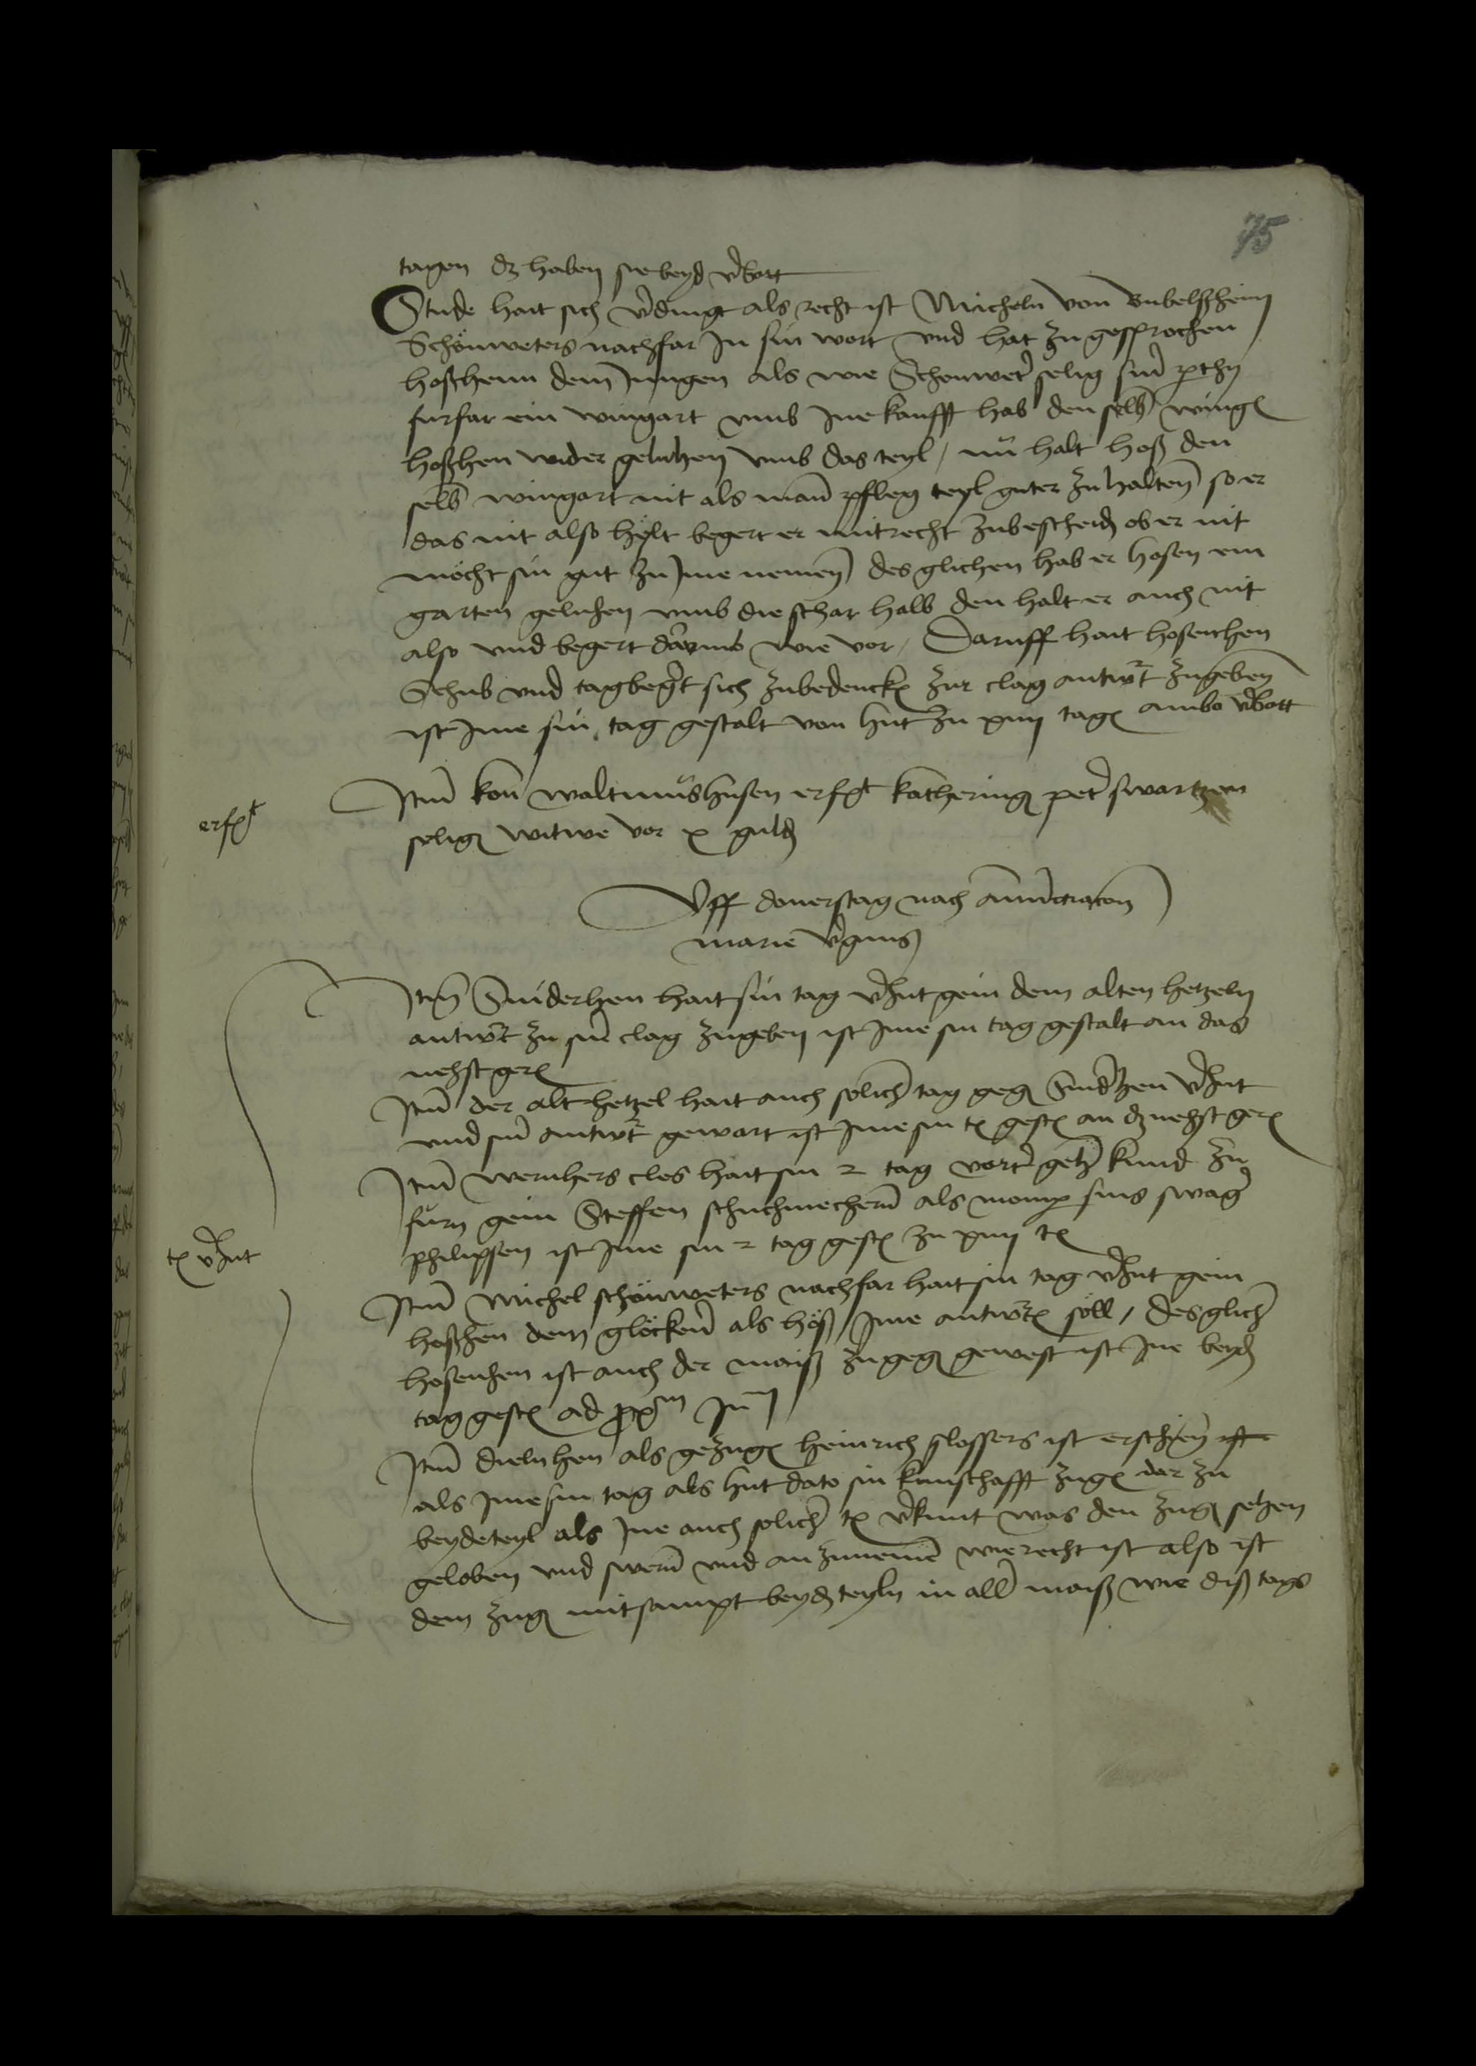 75
tagen dz haben sie beyd v̓bott
Stude hait sich v̓dingt als recht ist Micheln von Bubelßheim
Schönweters nachfar In sin wort und hat zugesprochen
hoßhenn dem Jungen als wie Schonwet̓ selig sin̓ p̱thy
furfar ein wingart umb Ine kaufft hab den selb̄ wing
hoßhen wider geluhen umb das teyl / nu halt hoß den
selb̄ wingart nit als man̄ pfleg teyl guter zu halten so er
das nit also helt begert er mit recht zubescheid ob er nit
möcht sin gut zu Ime nemen des glichen hab er hosen ein
garten geluhen umb die schar halb den halt er auch nit
also und begert darumb wie vor / Daruff hait hosenhen
Schub und tag beg̓t sich zubedenck zur clag antw̓t zugeben
ist Ime sin tag gestalt von hut zu xiiij tag ambo v̓bott
erf̱t
Itm̄ kon waltmüshusen erf̱t kathering pet̓ swartzen
selig witwe vor x guld
Uff donerstag nach Annu̓ciacon
marie v̓ginis
Itm̄ Sniderhen hait sin tag v̓hut gein dem alten hetzeln
antw̓t zu sin̓ clag zugeben ist Ime sin tag gestalt an das
nehst ger
Itm̄ der alt hetzel hait auch solich tag geg Snid̓hen v̓hut
und sin̓ antw̓t gewart ist Ime sin t gest an dz nehst ger
Itm̄ wernhers cles hait sin 2 tag vort̓ gez̓ kund zu
furn gein Steffen schuchmechern̄ als momp̱ sins swag̓
philipsen ist Ime sin 2 tag gest zu xiiij t
t v̓hut
Itm̄ Michel schönweters nachfar hait sin tag v̓hut gein
hoßhen dem glöckener als höß Ime antw̓t söll / des glich
hosenhen ist auch der maiß zugeg gewest ist Ine beyd
tag gest ad p̱xm Ju
Itm̄ dielnhen als gezug heinrich slossers ist erschen ist
als Ime sin tag als hut dato sin kuntschafft zug dar zu
beydeteyl als Ine auch solich t v̓kunt was den zug setzen
geloben und swern̄ und an zunemē wie recht ist also ist
dem zug mitsampt beyd teyln in all̓ maiß wie diß tags